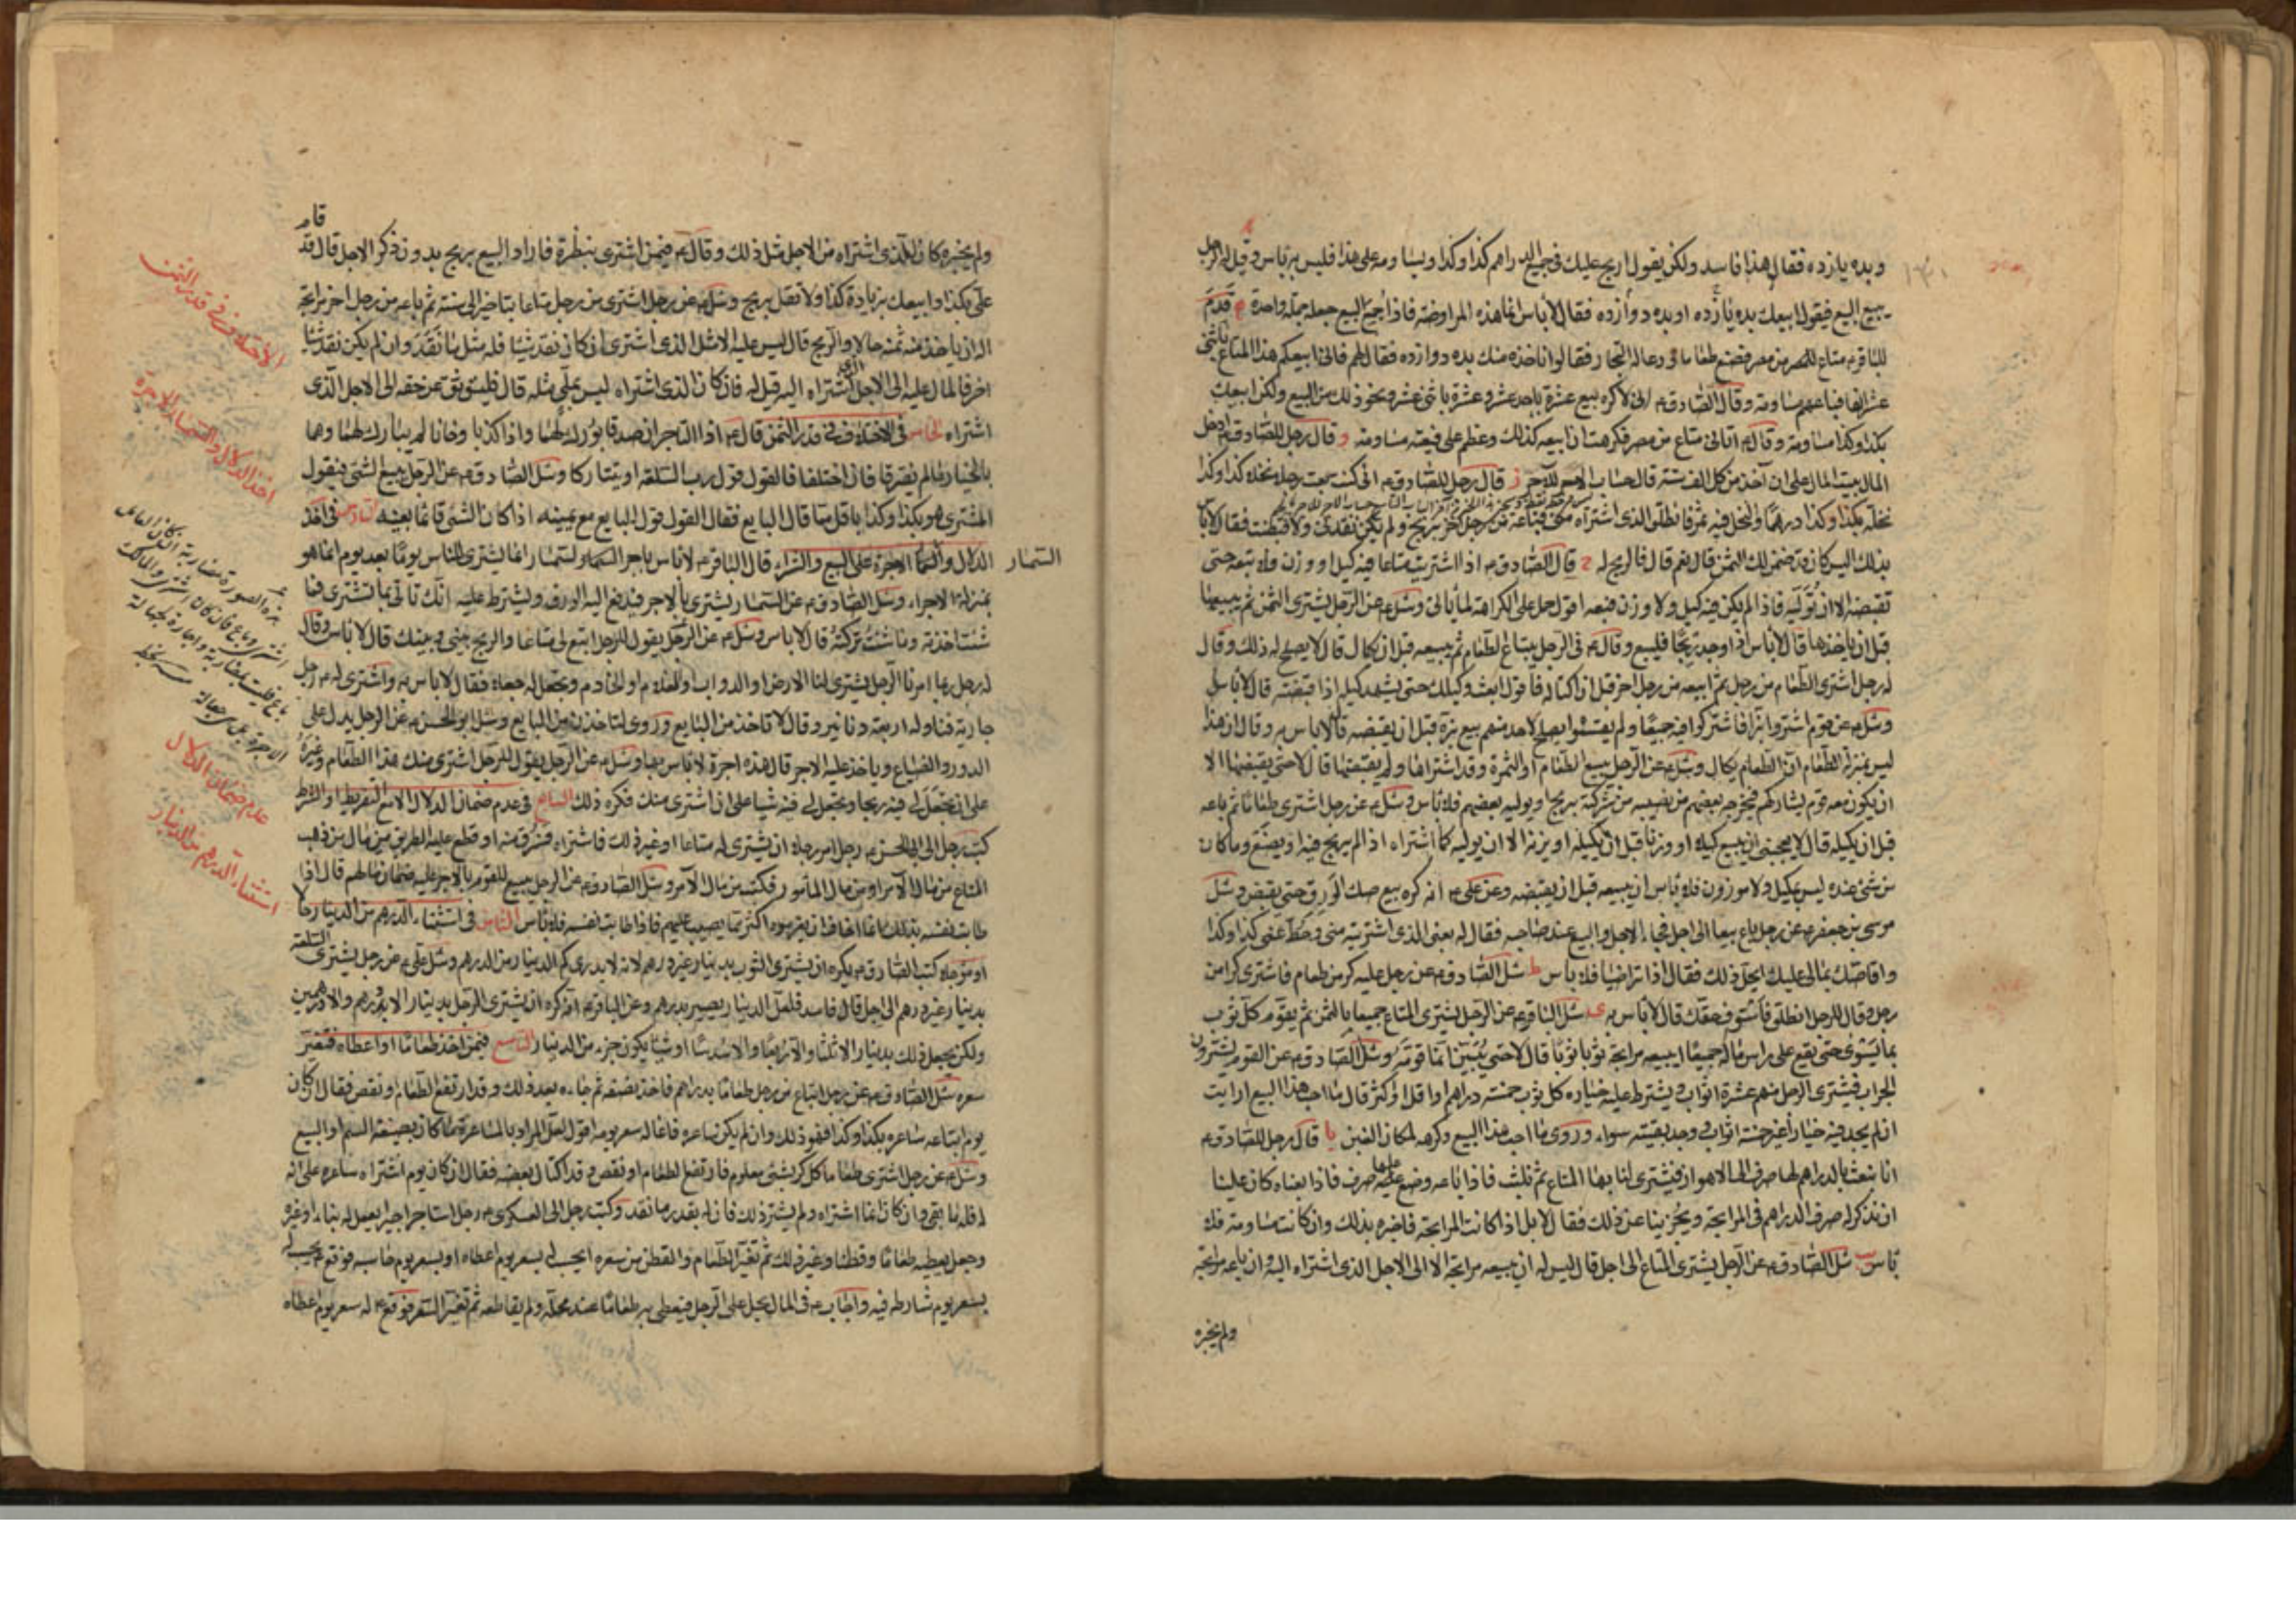 وبده يازده فقال هذا فاسد ولكن يقول اربح عليك في جميع الدراهم كذا وكذا ويساومه على هذا فليس به باس وقيل له الرجل
يبيع البيع فيقول ابيعك بده يازده او بده دوازده فقال لا باس انما هذه المراوضة فاذا جمع البيع جعله جملة واحدة قدم
للباقر متاع من مصر فصنع طعاما ودعا له التجار فقالوا ناخذه منك بده دوازده فقال لهم فاني ابيعكم هذا المتاع باثني
عشر الفا فباعهم مساومة وقال الصادق اني لاكره بيع عشرة باحد عشر وعشرة باثني عشر ونحو ذلك من البيع ولكن ابيعك
بكذا وكذا مساومة وقال اتاني متاع من مصر فكرهت ان ابيعه كذلك وعظم علي فبعته مساومة وقال رجل للصادق ادخل
المال بيت المال على ان آخذ من كل الف ستة قال حساب الاجر للآجر ز قال رجل للصادق اني كنت بعت رجلا نخلا كذا وكذا
نخلة بكذا وكذا درهما والنخل فيه ثمر فانطلق الذي اشتراه مني فباعه من رجل آخر بربح ولم يكن نقدني ولا قبضت فقال لا باس
بذلك اليس كان قد ضمن لك الثمن قال نعم قال فالربح له ح قال الصادق اذا اشتريت متاعا فيه كيل او وزن فلا تبعه حتى
تقبضه الا ان توليه فاذا لم يكن فيه كيل ولا وزن فبعه اقول حمل على الكراهة لما ياتي وسئل عن الرجل يشتري الثمن ثم يبيعها
قبل ان ياخذها قال لا باس اذا وجد ربحا فليبع وقال في الرجل يبتاع الطعام ثم يبيعه قبل ان يكال قال لا يصلح له ذلك وقال
له رجل اشتري الطعام من رجل ثم ابيعه من رجل آخر قبل ان اكتاله فاقول ابعث وكيلك حتى يشهد كيله اذا قبضته قال لا باس
وسئل عن قوم اشتروا بزا فاشتركوا فيه جميعا ولم يقسموا ايصلح لاحد منهم بيع بزه قبل ان يقبضه قال لا باس به وقال ان هذا
ليس بمنزلة الطعام ان الطعام يكال وسئل عن الرجل يبيع الطعام او الثمرة وقد اشتراها ولم يقبضها قال لا حتى يقبضها الا
ان يكون معه قوم يشاركهم فيخرجه بعضهم من نصيبه من شركته بربح او يوليه بعضهم فلا باس وسئل عن رجل اشترى طعاما ثم باعه
قبل ان يكيله قال لا يعجبني ان يبيع كيلا او وزنا قبل ان يكيله او يزنه الا ان يوليه كما اشتراه اذا لم يربح فيه او يضع وما كان
من شيء عنده ليس بكيل ولا موزون فلا باس ان يبيعه قبل ان يقبضه وعن علي انه كره بيع صك الورق حتى يقبض وسئل
موسى بن جعفر عن رجل باع بيعا الى اجل فجاء الاجل والبيع عند صاحبه فقال له بعني الذي اشتريته مني وحط عني كذا وكذا
واقاصك بمالي عليك ايحل ذلك فقال اذا تراضيا فلا باس ط سئل الصادق عن رجل عليه كر من طعام فاشترى كرا من
رجل وقال للرجل انطلق فاستوف حقك قال لا باس به ى سئل الباقر عن الرجل يشتري المتاع جميعا بالثمن ثم يقوم كل ثوب
بما يسوى حتى يقع على راس ماله جميعا ايبيعه مرابحة ثوبا ثوبا قال لا حتى يبين انما قومه وسئل الصادق عن القوم يشترون
الجراب فيشتري الرجل منهم عشرة اثواب يشترط عليه خياره كل ثوب خمسة دراهم او اقل او اكثر قال ما احب هذا البيع ارايت
ان لم يجد فيه خيارا غير خمسة اثواب ووجد بقيته سواء وروى ما احب هذا البيع وكرهه لمكان الغبن يا قال رجل للصادق
انا نبعث بالدراهم لها صرف الى الاهواز فيشتري لنا بها المتاع ثم نلبث فاذا باعه وضع عليه صرف فاذا بعناه كان علينا
ان نذكر له صرف الدراهم في المرابحة ويجزينا عن ذلك فقال لا بل اذا كانت المرابحة فاخبره بذلك وان كانت مساومة فلا
باس يب سئل الصادق عن الرجل يشتري المتاع الى اجل قال ليس له ان يبيعه مرابحة الا الى الاجل الذي اشتراه اليه وان باعه مرابحة
ولم يخبره
ولم يخبره كان للذي اشتراه من الاجل مثل ذلك وقال فيمن اشترى بنظرة فاراد البيع بربح بدون ذكر الاجل قال قد قام
علي بكذا وابيعك بزيادة كذا ولا تقل بربح وسئل عن رجل اشترى من رجل متاعا بتاخير الى سنة ثم باعه من رجل آخر مرابحة
اله ان ياخذ منه ثمنه حالا والربح قال ليس عليه الا مثل الذي اشترى ان كان نقد شيئا فله مثل ما نقد وان لم يكن نقد شيئا
آخر فالمال عليه الى الاجل الذي اشتراه اليه قيل له فان كان الذي اشتراه ليس بملي مثله قال فليستوثق من حقه الى الاجل الذي
اشتراه الخامس في الاختلاف في قدر الثمن قال اذا التاجران صدقا بورك لهما واذا كذبا وخانا لم يبارك لهما وهما
بالخيار ما لم يفترقا فان اختلفا فالقول قول رب السلعة او يتتاركا وسئل الصادق عن الرجل يبيع الشيء فيقول
المشتري هو بكذا وكذا باقل مما قال البايع فقال القول قول البايع مع يمينه اذا كان الشيء قائما بعينه السادس في اخذ
الدلال والسمسار الاجرة على البيع والشراء قال الباقر لا باس باجر السمسار انما يشتري للناس يوما بعد يوم انما هو
السمسار
بمنزلة الاجراء وسئل الصادق عن السمسار يشتري بالاجر فيدفع اليه الورق ويشترط عليه انك تاتي بما تشتري فما
شئت اخذته وما شئت تركته قال لا باس وسئل عن الرجل يقول للرجل ابتع لي متاعا والربح بيني وبينك قال لا باس وقال
له رجل ربما امرنا الرجل يشتري لنا الارض او الدواب او الغلام او الخادم ونجعل له جعلا فقال لا باس به واشترى له رجل
جارية فناوله اربعة دنانير وقال لا تاخذ من البايع وروى لتاخذن من البايع وسئل ابو الحسن عن الرجل يدل على
الدور والضياع وياخذ عليه الاجر قال هذه اجرة لا باس بها وسئل عن الرجل يقول للرجل اشتري منك هذا الطعام وغيره
على ان تجعل لي فيه ربحا وتجعل لي فيه شيئا على ان اشتري منك فكره ذلك السابع في عدم ضمان الدلال الا مع التفريط او الشرط
كتب رجل الى ابي الحسن رجل امر رجلا ان يشتري له متاعا او غير ذلك فاشتراه فسرق منه او قطع عليه الطريق من مال من ذهب
المتاع من مال الآمر او من مال المامور فكتب من مال الآمر وسئل الصادق عن الرجل يبيع للقوم بالاجر عليه ضمان مالهم قال اذا
طابت نفسه بذلك انما اخاف ان يغرموه اكثر مما يصيب عليهم فاذا طابت نفسه فلا باس الثامن في استثناء الدرهم من الدينار حالا
او مؤجلا كتب الصادق يكره ان يشترى الثوب بدينار غير درهم لانه لا يدرى كم الدينار من الدرهم وسئل علي عن رجل يشتري السلعة
بدينار غير درهم الى اجل قال فاسد فلعل الدينار يصير بدرهم وعن الباقر انه كره ان يشتري الرجل بدينار الا درهم والا درهمين
ولكن يجعل ذلك بدينار الا ثلثا والا ربعا والا سدسا او شيئا يكون جزء من الدينار التاسع فيمن اخذ طعاما او اعطاه فتغير
سعره سئل الصادق عن رجل ابتاع من رجل طعاما بدراهم فاخذ نصفه ثم جاءه بعد ذلك وقد ارتفع الطعام او نقص فقال ان كان
يوم ابتاعه ساعره بكذا وكذا فهو ذلك وان لم يكن ساعره فانما له سعر يومه اقول لعل المراد بالمساعرة ما كان بصيغة السلم او البيع
وسئل عن رجل اشترى طعاما كل كر بشيء معلوم فارتفع الطعام او نقص وقد اكتال بعضه فقال ان كان يوم اشتراه ساعره على انه
له فله ما بقي وان كان انما اشتراه ولم يشترط ذلك فان له بقدر ما نقد وكتب رجل الى العسكري رجل استاجر اجيرا يعمل له بناء او غيره
وجعل يعطيه طعاما وقطنا وغير ذلك ثم تغير الطعام والقطن من سعره ايحسب له بسعر يوم اعطاه او بسعر يوم حاسبه فوقع يحسب له
بسعر يوم شارطه فيه واجاب في المال يحل على الرجل فيعطى به طعاما عند محله ولم يقاطعه ثم تغير السعر فوقع له سعر يوم اعطاه
الاختلاف في قدر الثمن
اخذ الدلال والسمسار الاجرة
عدم ضمان الدلال
استثناء الدرهم من الدينار